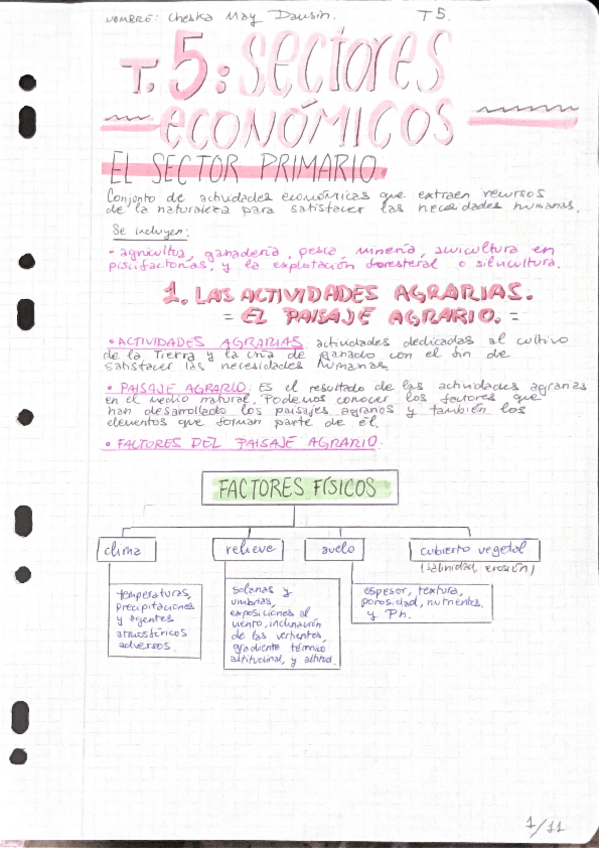 NOMBRE: Cheska May Dausin. T5.
T.5: sectores
económicos
EL SECTOR PRIMARIO.
Conjonto de actividades económicas que extraen recursos
de la naturaleza para satisfacer las necesidades humanas.
Se incluyen:
• agricultura, ganadería, pesca, minería, avicultura en
piscifactorías, y la explotación foresteral o silvicultura.
1. LAS ACTIVIDADES AGRARIAS.
= EL PAISAJE AGRARIO. =
• ACTIVIDADES AGRARIAS actividades dedicadas al cultivo
de la Tierra y la cría de ganado con el fin de
satisfacer las necesidades humanas.
• PAISAJE AGRARIO: Es el resultado de las actividades agrarias
en el medio natural. Podemos conocer los factores que
han desarrollado los paisajes agrarios y también los
elementos que forman parte de él.
• FACTORES DEL PAISAJE AGRARIO.
FACTORES FÍSICOS
clima
relieve
suelo
cubierto vegetal
(salinidad, erosión)
temperaturas,
precipitaciones
y agentes
atmosféricos
adversos.
solanas y
umbrías,
exposiciones al
viento, inclinación
de las vertientes,
gradiente térmico
altitudinal, y altitud.
espesor, textura,
porosidad, nutrientes.
y Ph.
1/11